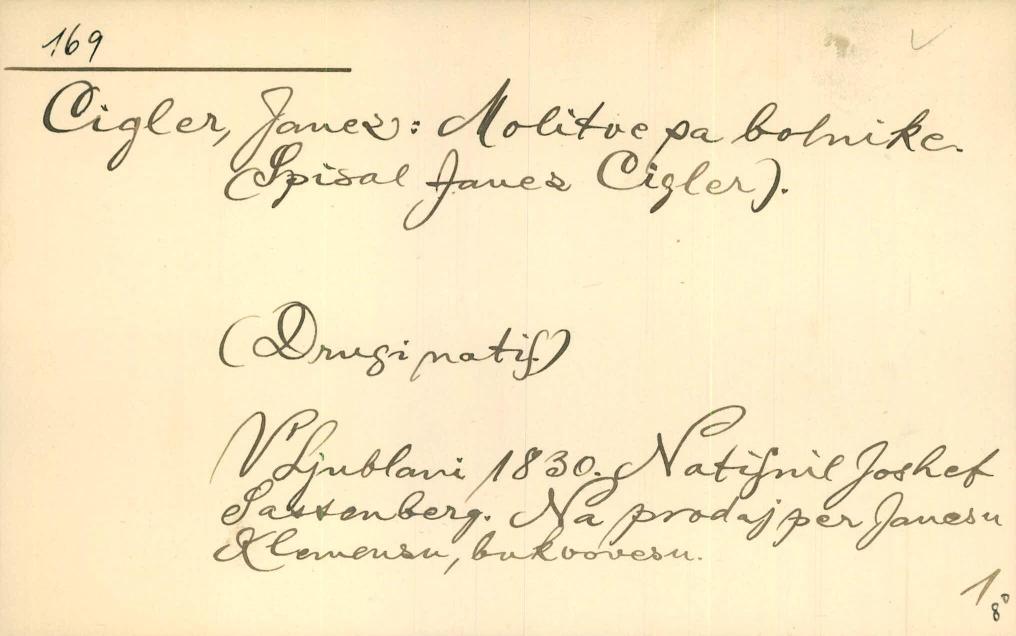 169
Cigler, Janez: Molitve sa bolnike.
(Spisal Janes Cigler).
(Drugi natiſ)
V Ljublani 1830. Natiſnil Joshef
Sassenberg. Na prodaj per Janesu
Klemensu, bukvovesu.
1
8°